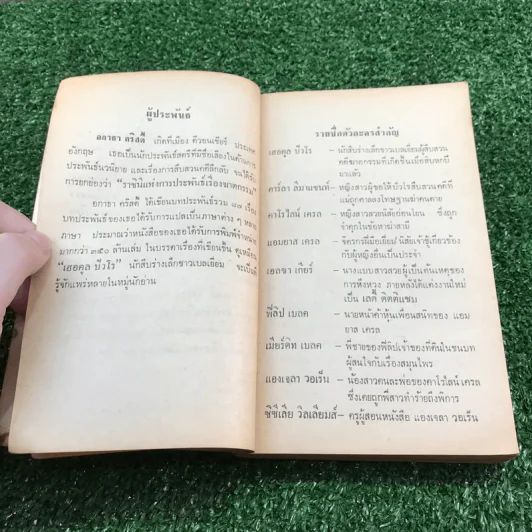 ผู้ประพันธ์
อกาธา คริสตี้ เกิดที่เมือง ดีวอนเชียร์ ประเทศ
อังกฤษ เธอเป็นนักประพันธ์สตรีที่มีชื่อเสียงในด้านการ
ประพันธ์นวนิยาย และเรื่องการสืบสวนคดีลึกลับ จนได้รับ
การยกย่องว่า "ราชินีแห่งการประพันธ์เรื่องฆาตกรรม"
อกาธา คริสตี้ ได้เขียนบทประพันธ์รวม ๘๗ เรื่อง
บทประพันธ์ของเธอได้รับการแปลเป็นภาษาต่าง ๆ หลาย
ภาษา ประมาณว่าหนังสือของเธอได้รับการพิมพ์จำหน่าย
มากกว่า ๓๕๐ ล้านเล่ม ในบรรดาเรื่องที่เขียนขึ้น ดูเหมือน
"เฮอคูล ปัวโร" นักสืบร่างเล็กชาวเบลเยี่ยม จะเป็นที่
รู้จักแพร่หลายในหมู่นักอ่าน
รายชื่อตัวละครสำคัญ
เฮอคูล ปัวโร – นักสืบร่างเล็กชาวเบลเยี่ยมผู้สืบสวน
คดีฆาตกรรมที่เกิดขึ้นเมื่อสิบหกปี
มาแล้ว
คาร์ลา ลิมาแชนท์ – หญิงสาวผู้ขอให้ปัวโรสืบสวนคดีที่
แม่ถูกศาลลงโทษฐานฆ่าคนตาย
คาโรไลน์ เครล – หญิงสาวสวยนิสัยอ่อนโยน ซึ่งถูก
จำคุกในข้อหาฆ่าสามี
แอมยาส เครล – จิตรกรผู้มีชื่อเสียง นิสัยเจ้าชู้เกี่ยวข้อง
กับผู้หญิงอื่นเป็นประจำ
เอลซา เกียร์ – นางแบบสาวสวยผู้เป็นต้นเหตุของ
การหึงหวง ภายหลังได้แต่งงานใหม่
เป็น เลดี้ ดิตติแชม
ฟิลิป เบลค – นายหน้าค้าหุ้นเพื่อนสนิทของ แอม
ยาส เครล
เมียร์ดิท เบลค – พี่ชายของฟิลิปเจ้าของที่ดินในชนบท
ผู้สนใจกับเรื่องสมุนไพร
แองเจลา วอเร็น – น้องสาวคนละพ่อของคาโรไลน์ เครล
ซึ่งเคยถูกพี่สาวทำร้ายถึงพิการ
ซีซีเลีย วิลเลียมส์ – ครูผู้สอนหนังสือ แองเจลา วอเร็น